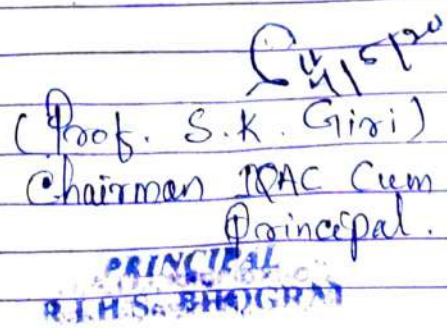 4/5/20
(Prof. S.K. Giri)
Chairman IQAC Cum
Principal.
PRINCIPAL
R.I.H.S. BHOGRAI